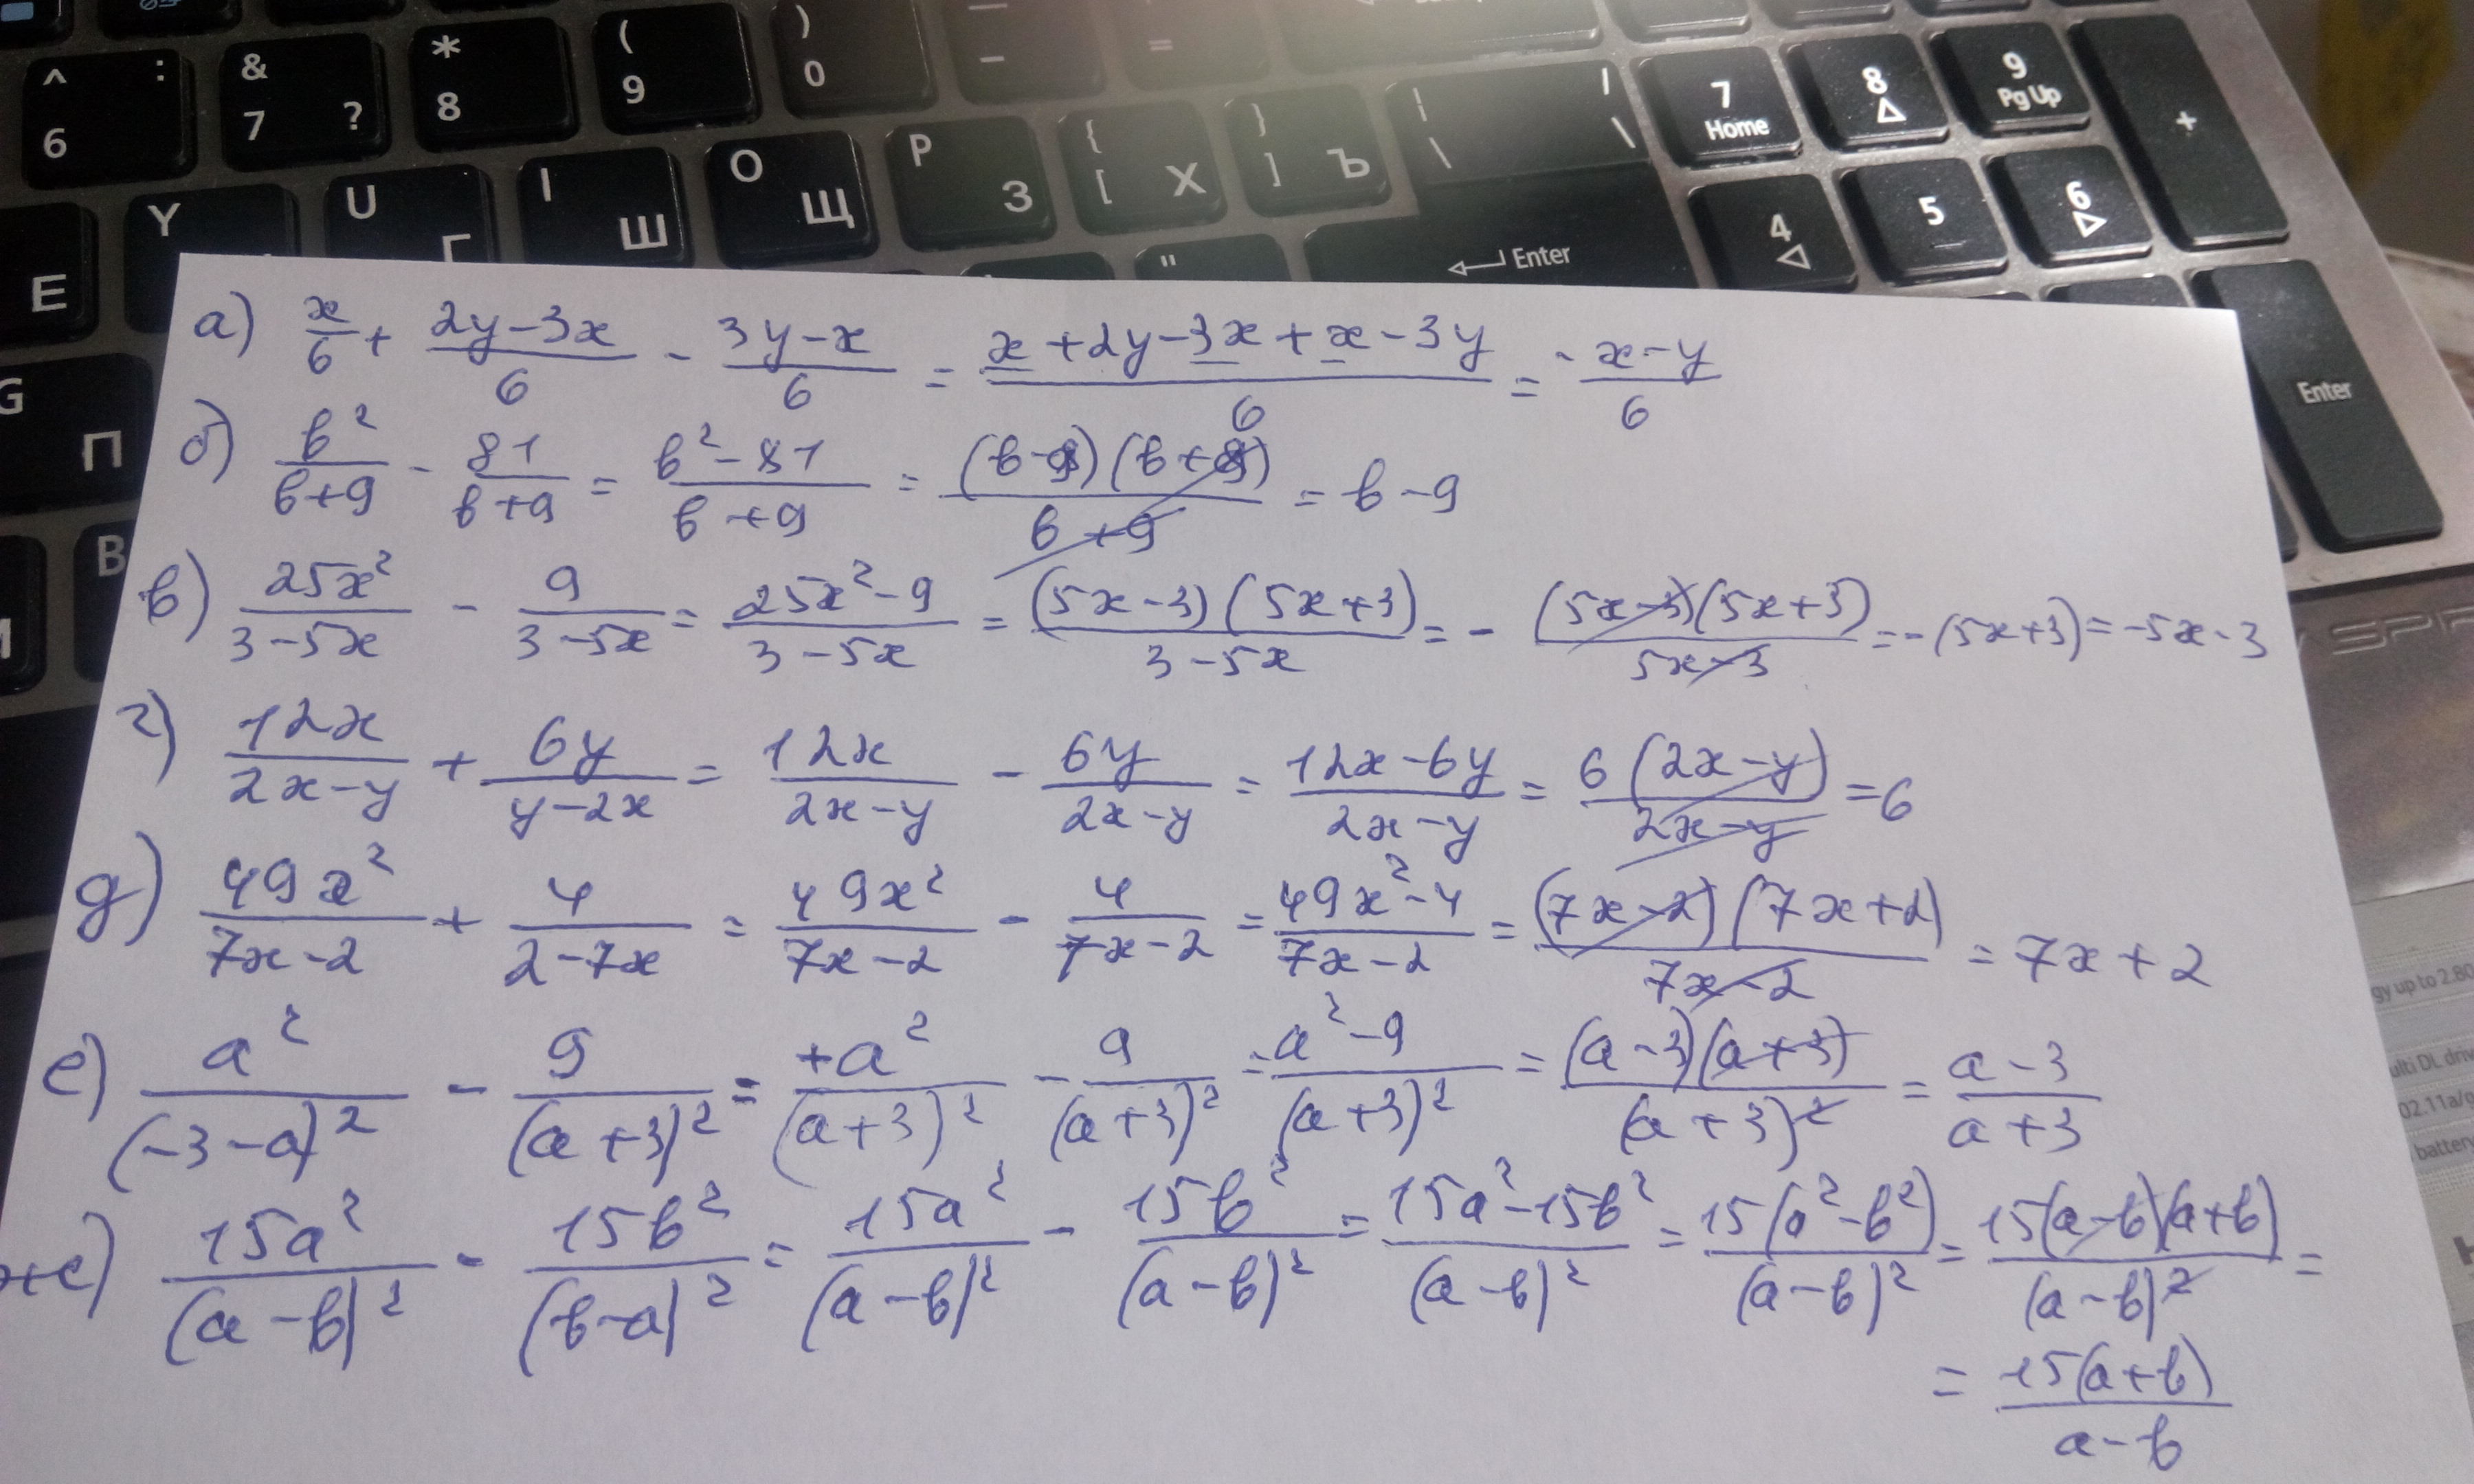 ^ :
6
& 7 ?
* 8
( 9
) 0
_ -
=
7 Home
8
9 Pg Up
+
Y
U Г
I Ш
O Щ
P З
{ [ Х
} ] Ъ
| \ / \
4
5
6
Е
"
Enter
Enter
G П
B
SPI
а) x/6 + (2y-3x)/6 - (3y-x)/6 = (x+2y-3x+x-3y)/6 = (-x-y)/6
б) b²/(b+9) - 81/(b+9) = (b²-81)/(b+9) = (b-9)(b+9)/(b+9) = b-9
в) 25x²/(3-5x) - 9/(3-5x) = (25x²-9)/(3-5x) = (5x-3)(5x+3)/(3-5x) = - (5x-3)(5x+3)/(5x-3) = -(5x+3) = -5x-3
г) 12x/(2x-y) + 6y/(y-2x) = 12x/(2x-y) - 6y/(2x-y) = (12x-6y)/(2x-y) = 6(2x-y)/(2x-y) = 6
g) 49x²/(7x-2) + 4/(2-7x) = 49x²/(7x-2) - 4/(7x-2) = (49x²-4)/(7x-2) = (7x-2)(7x+2)/(7x-2) = 7x+2
е) a²/(-3-a)² - 9/(a+3)² = +a²/(a+3)² - 9/(a+3)² = (a²-9)/(a+3)² = (a-3)(a+3)/(a+3)² = (a-3)/(a+3)
ж) 15a²/(a-b)² - 15b²/(b-a)² = 15a²/(a-b)² - 15b²/(a-b)² = (15a²-15b²)/(a-b)² = 15(a²-b²)/(a-b)² = 15(a-b)(a+b)/(a-b)² =
= 15(a+b)/(a-b)
gy up to 2.80
ulti DL driv
02.11a/g
batter